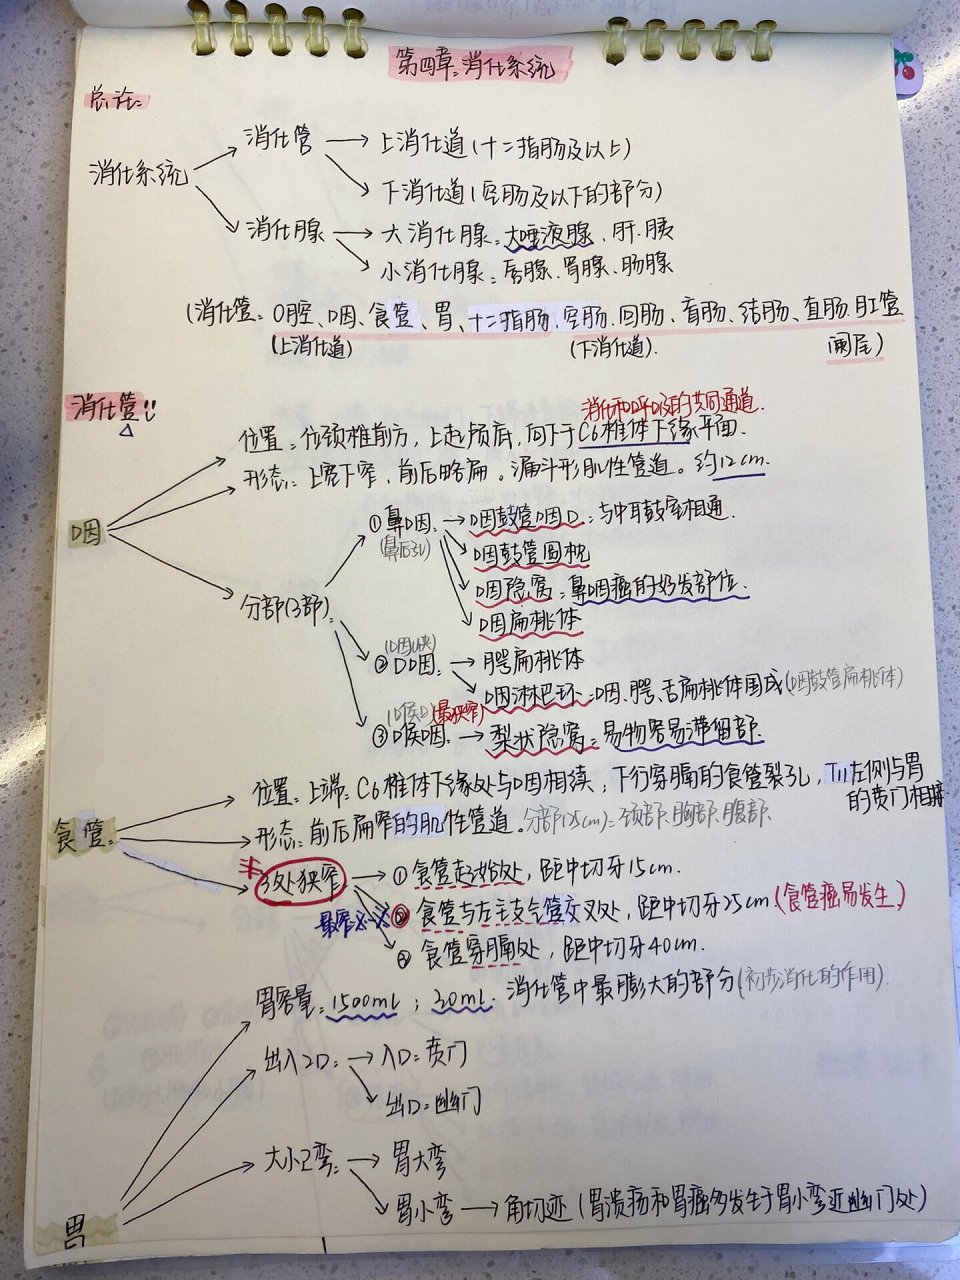 第四章:消化系统
总论:
消化管 → 上消化道(十二指肠及以上)
消化系统
下消化道(空肠及以下的部分)
消化腺 → 大消化腺:大唾液腺、肝、胰
小消化腺:唇腺、胃腺、肠腺
(消化管:口腔、咽、食管、胃、十二指肠、空肠、回肠、盲肠、结肠、直肠、肛管
(上消化道) (下消化道). (阑尾)
消化管!!
消化和呼吸的共同通道.
位置:位颈椎前方,上起颅底,向下于C6椎体下缘平面.
形态:上宽下窄,前后略扁。漏斗形肌性管道。约12cm.
咽
分部(3部):
①鼻咽: → 咽鼓管咽口:与中耳鼓室相通.
(鼻后孔)
咽鼓管圆枕
咽隐窝:鼻咽癌的好发部位.
咽扁桃体
(咽峡)
②口咽: → 腭扁桃体
咽淋巴环:咽、腭、舌扁桃体围成(咽鼓管扁桃体)
(喉口)(最狭窄)
③喉咽: → 梨状隐窝:易物容易滞留部.
食管:
位置:上端:C6椎体下缘处与咽相续,下行穿膈的食管裂孔,T11左侧与胃
的贲门相接
形态:前后扁窄的肌性管道。分部(25cm):颈部、胸部、腹部.
3处狭窄 → ①食管起始处,距中切牙15cm.
最窄 ②食管与左主支气管交叉处,距中切牙25cm(食管癌易发生)
③食管穿膈处,距中切牙40cm.
胃容量:1500ml;30ml. 消化管中最膨大的部分(初步消化的作用).
出入2口: → 入口:贲门
出口:幽门
大小2弯: → 胃大弯
胃小弯 → 角切迹(胃溃疡和胃癌多发生于胃小弯近幽门处)
胃